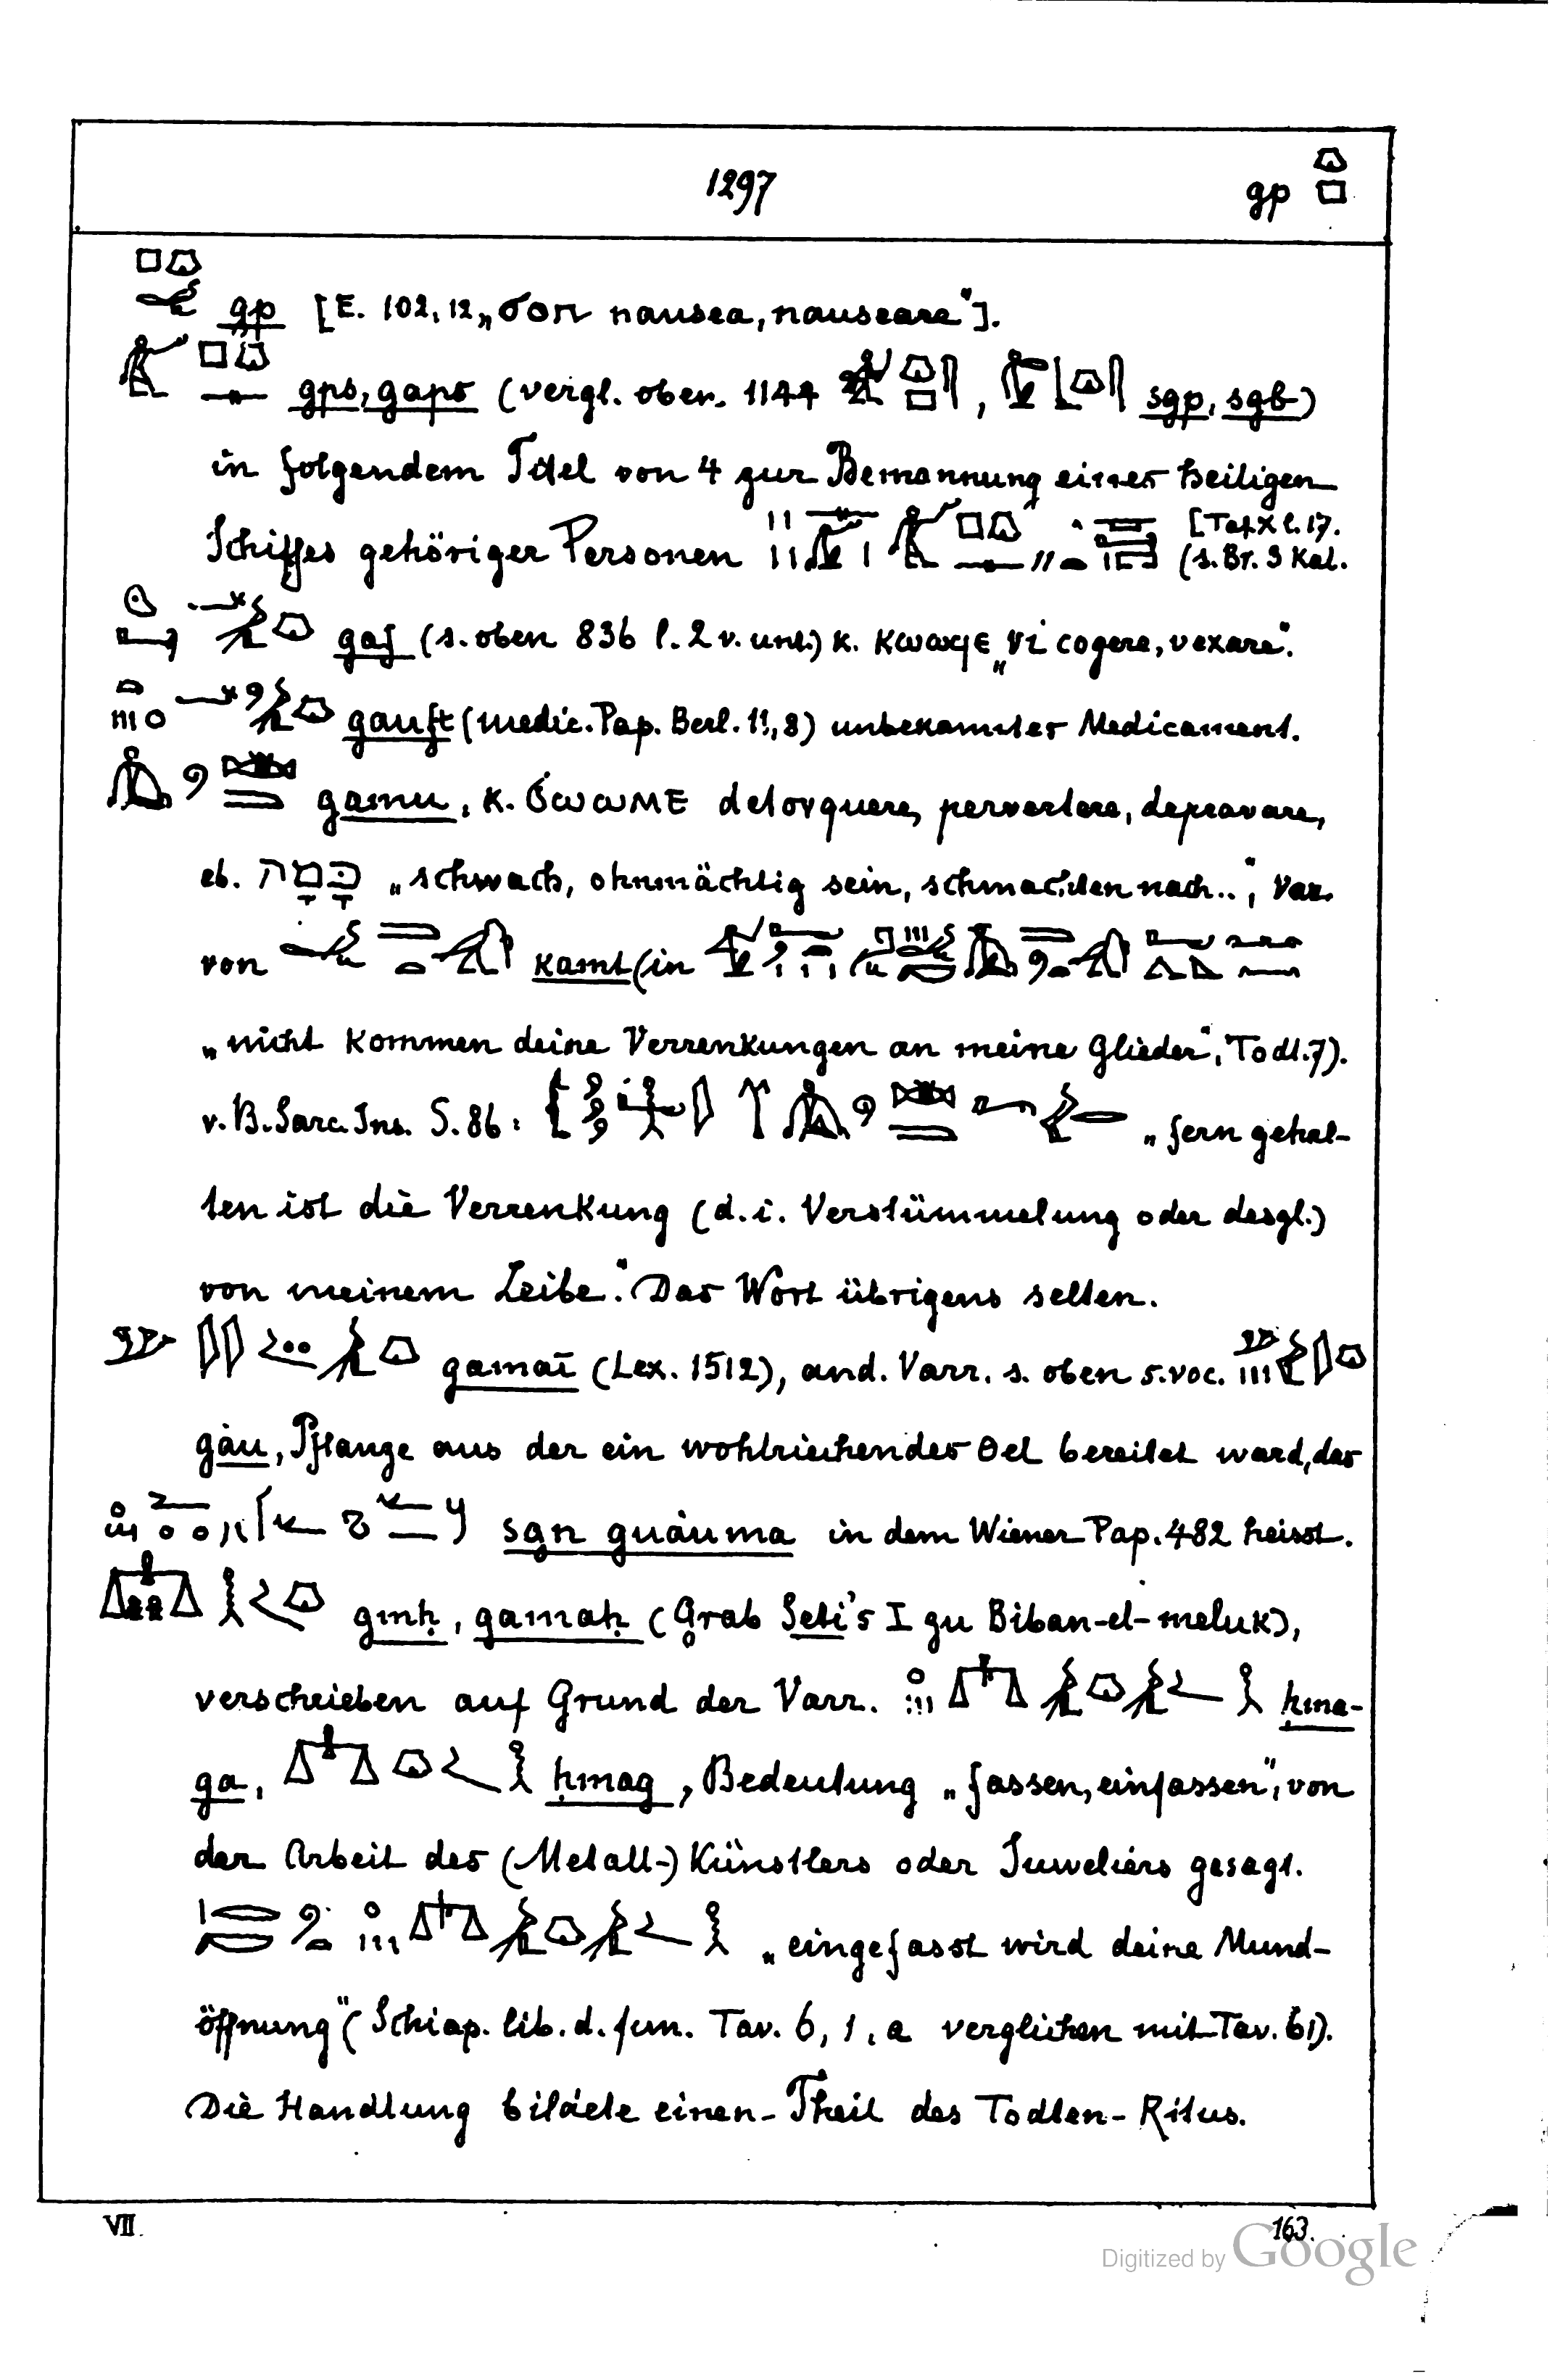 1297
gp
gp [E. 102, 12 „ϭⲟⲡ nausea, nauseare"].
gps, gaps (vergl. oben. 1144 , sgp, sgb)
in folgendem Titel von 4 zur Bemannung eines heiligen
Schiffes gehöriger Personen [Taf. X l. 17.
(s. Br. 3 Kal.
gaf (s. oben 836 l. 2 v. unt.) K. ⲕⲱⲱϥⲉ „vi cogere, vexare".
gauft (medic. Pap. Berl. 11, 8) unbekanntes Medicament.
gamu, K. ϭⲱⲱⲙⲉ detorquere, pervertere, depravare,
eb. כָּמָה „schwach, ohnmächtig sein, schmachten nach..", Var.
von kamt (in
„nicht kommen deine Verrenkungen an meine Glieder", Todt. 7).
v. B. Sarc. Ins. S. 86: „fern gehal-
ten ist die Verrenkung (d. i. Verstümmelung oder desgl.)
von meinem Leibe". Das Wort übrigens selten.
gamaī (Lex. 1512), and. Varr. s. oben s. voc.
gàu, Pflanze aus der ein wohlriechendes Oel bereitet ward, das
sgn guàuma in dem Wiener Pap. 482 heisst.
gmḥ, gamaḥ (Grab Seti's I zu Biban-el-meluk),
verschrieben auf Grund der Varr. ḥma-
ga, ḥmag, Bedeutung „fassen, einfassen", von
der Arbeit des (Metall-) Künstlers oder Juweliers gesagt.
„eingefasst wird deine Mund-
öffnung" (Schiap. lib. d. fun. Tav. 6, 1, a verglichen mit Tav. 61).
Die Handlung bildete einen Theil des Todten-Ritus.
VII.
163.
Digitized by Google